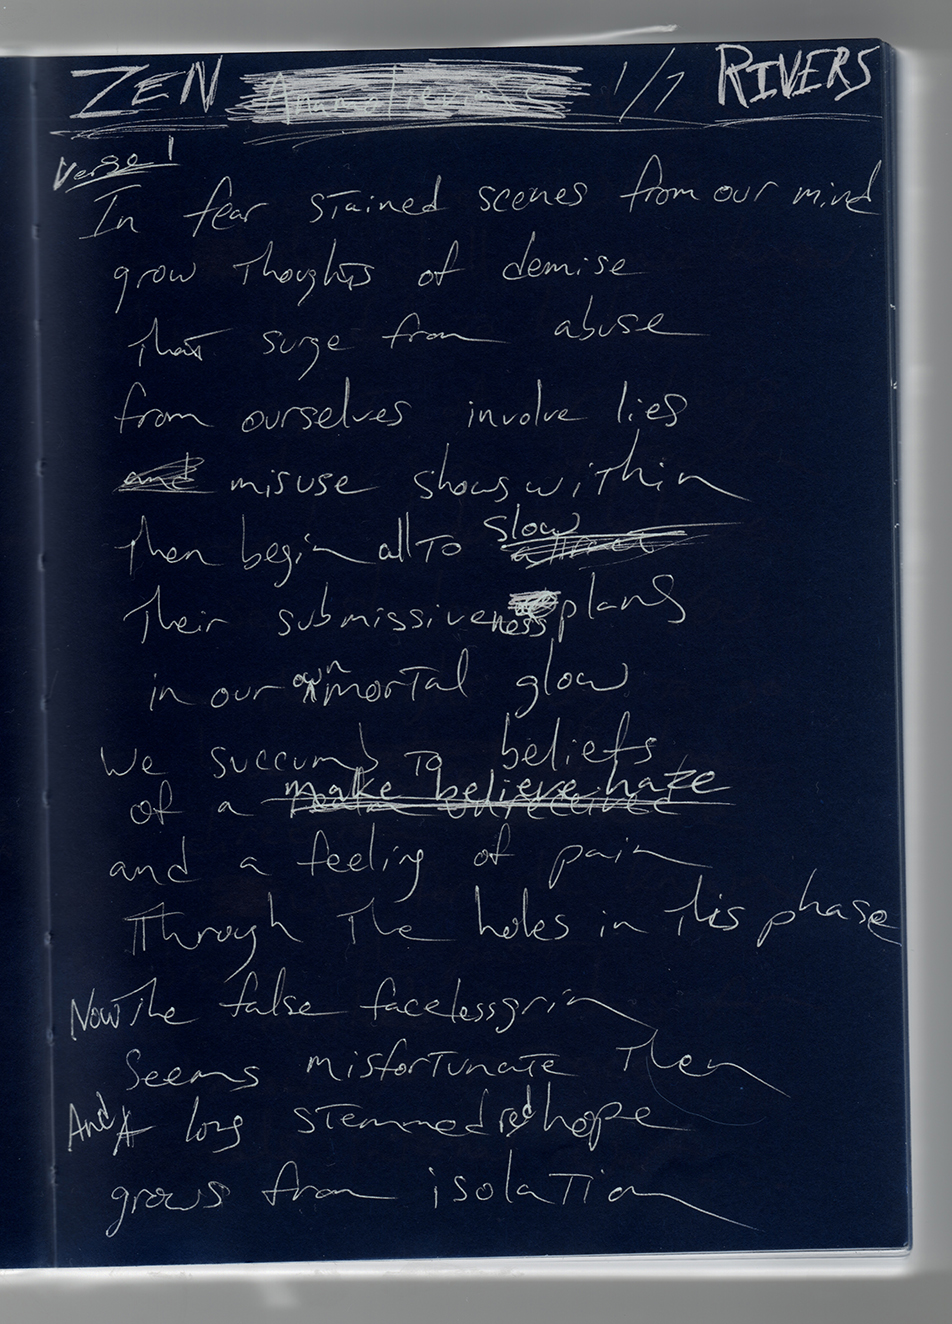 ZEN 1/7 RIVERS
Verse 1
In fear stained scenes from our mind
grow thoughts of demise
that surge from abuse
from ourselves involve lies
and misuse shows within
Then begin all to slow
Their submissiveness plans
in our own mortal glow
We succumb to beliefs
of a make believe haze
and a feeling of pain
Through the holes in this phase
Now the false faceless grin
Seems misfortunate Then
And A long stemmed red hope
grows from isolation